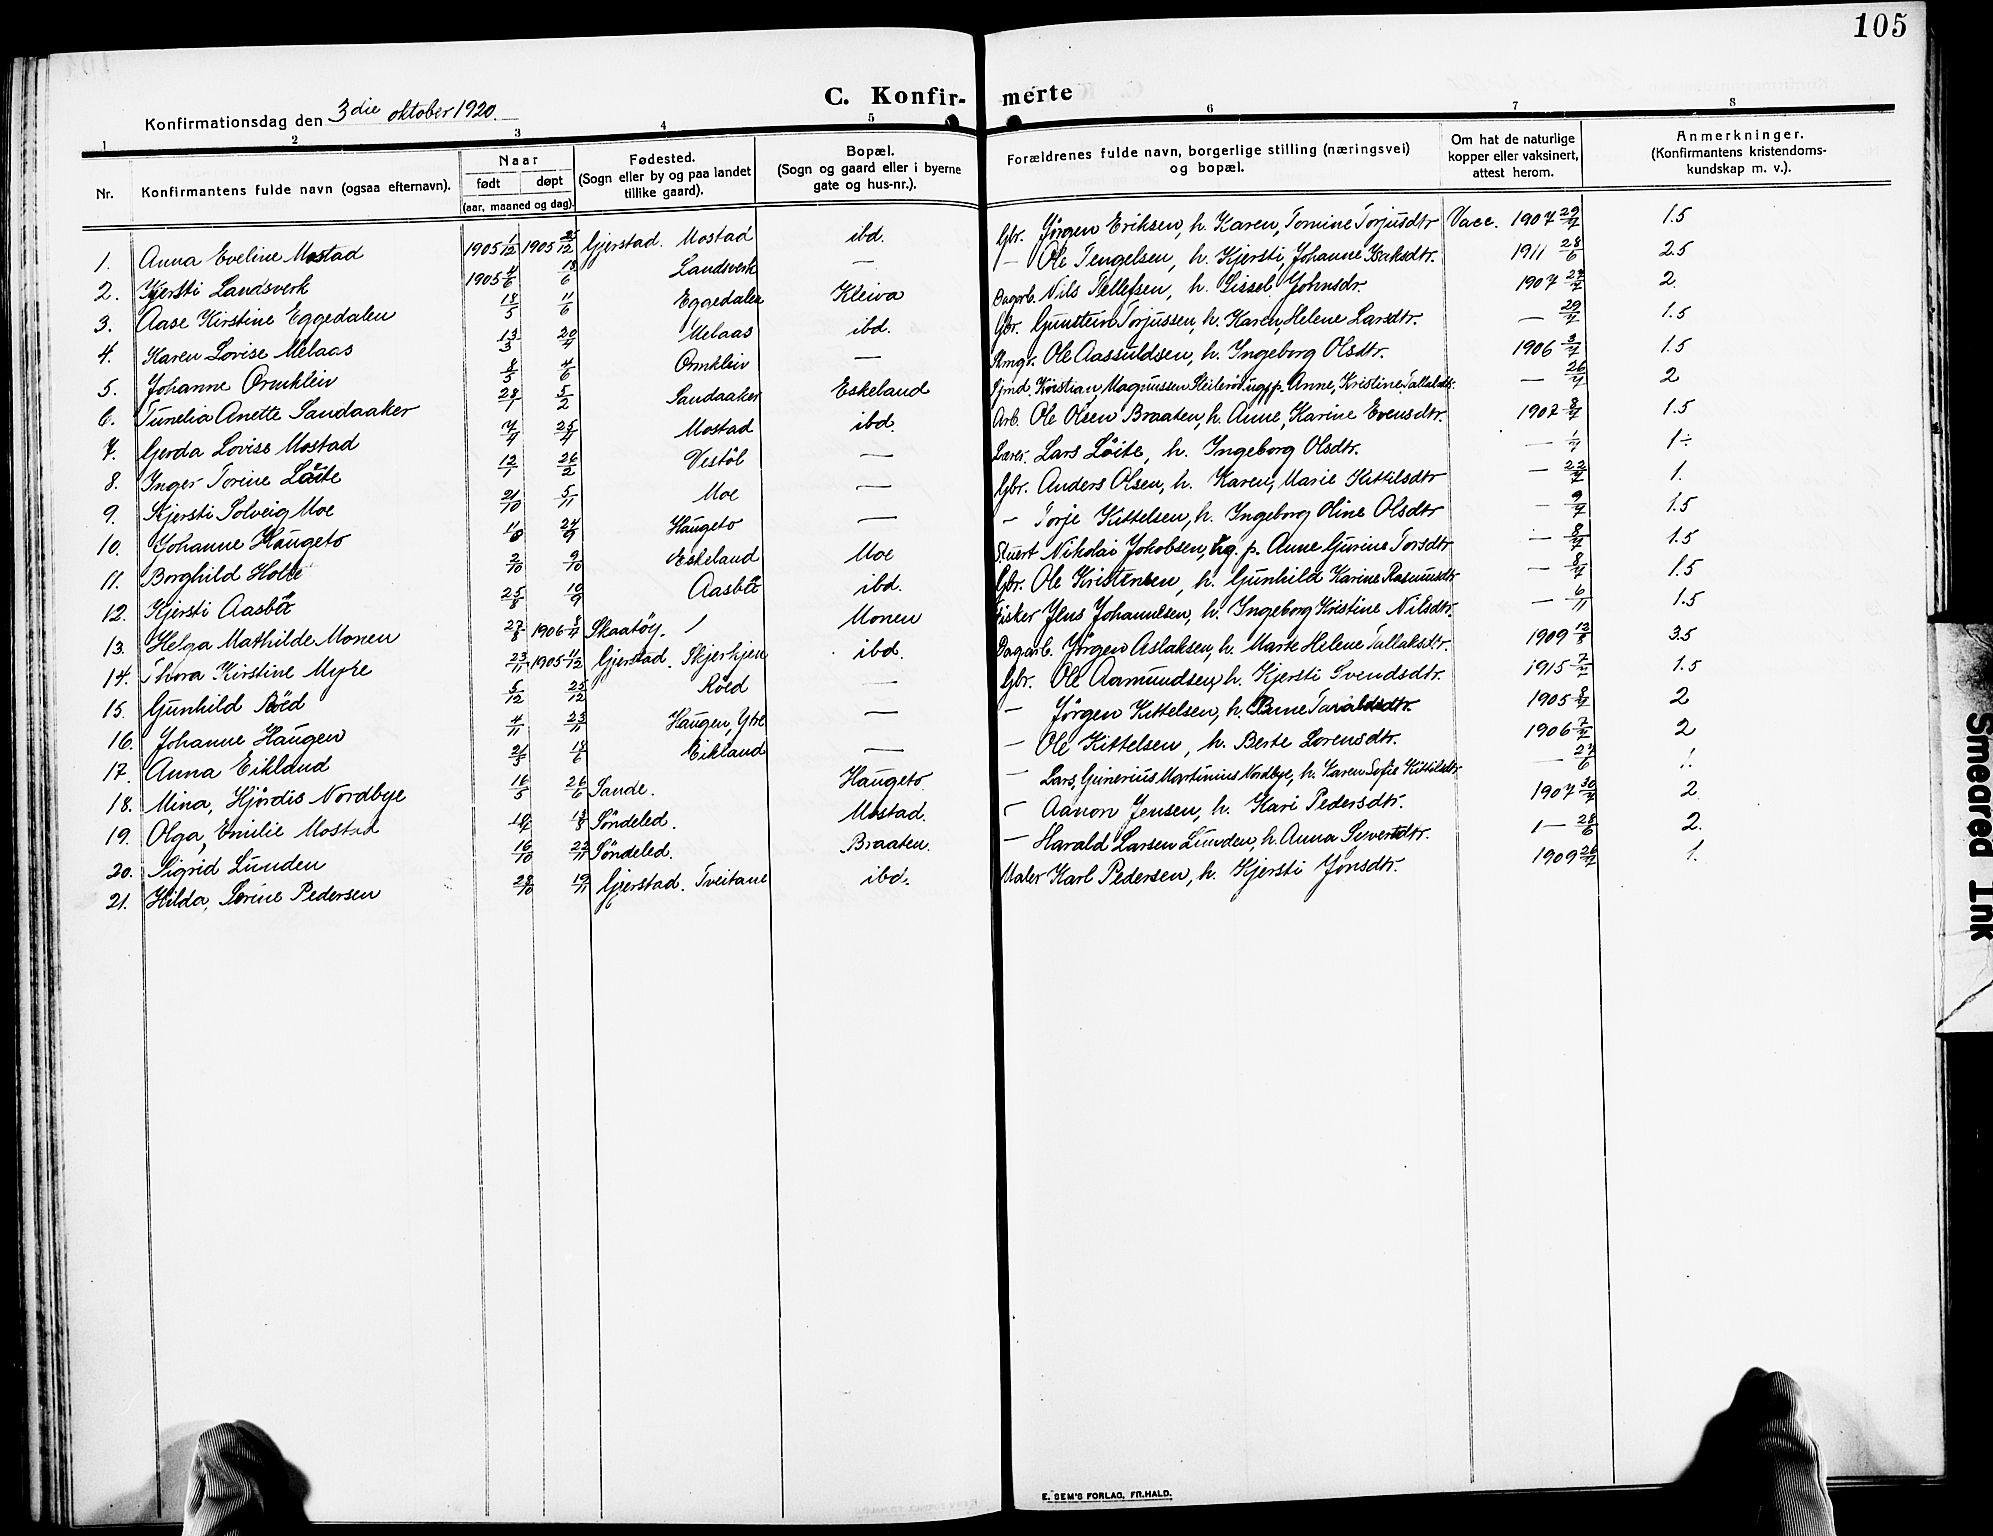 105
C. Konfirmerte
Konfirmationsdag den 3die oktober 1920.
1 2 3 4 5 6 7 8
Nr. Konfirmantens fulde navn (ogsaa efternavn). Naar født døpt (aar, maaned og dag). Fødested. (Sogn eller by og paa landet tillike gaard). Bopæl. (Sogn og gaard eller i byerne gate og hus-nr.). Forældrenes fulde navn, borgerlige stilling (næringsvei) og bopæl. Om hat de naturlige kopper eller vaksinert, attest herom. Anmerkninger. (Konfirmantens kristendomskundskap m. v.).
1. Anna Eveline Mostad 1905 1/12 1905 25/12 Gjerstad. Mostad ibd. Gbr. Jørgen Eriksen, h. Karen, Tomine Torjusdtr Vacc. 1907 29/7 1.5
2. Kjersti Landsverk 1905 4/6 18/6 Landsverk — — Ole Tengelsen, h. Kjersti, Johanne Isaksdtr. 1911 28/6 2.5
3. Aase Kirstine Eggedalen 18/5 11/6 Eggedalen Kleiva Dagarb. Nils Tellefsen, h. Sissel Johnsdr. 1907 2
4. Karen Lovise Melaas 13/3 20/4 Melaas ibd. Gbr. Gunstein Torjussen, h. Karen, Helene Larsdtr. — 29/7 1.5
5. Johanne Ormklein 8/5 4/6 Ormklein — Ole Aasuldsen, h. Ingeborg Olsdtr. 1906 3/7 1.5
6. Tunelia Anette Sandaaker 28/1 5/2 Sandaaker Eskeland Kristian, Magnussen ug. p. Anne, Kristine, — 26/7 2
7. Gerda Lovise Mostad 7/4 25/4 Mostad ibd. Arb. Ole Olsen Braaten, h. Anne, Karine Evensdtr. 1907 8/7 1.5
8. Inger Torine Løite 12/1 26/2 Vestøl — Lærer. Lars Løite, h. Ingeborg Olsdtr. — 1/7 1÷
9. Kjersti Solveig Moe 21/10 5/11 Moe — Gbr. Anders Olsen, h. Karen, Marie Kittilsdtr — 22/7 1.
10. Johanne Haugeto 11/8 24/9 Haugeto — — Torje Kittelsen, h. Ingeborg Oline Olsdtr — 9/7 1.5
11. Borghild Holte 2/10 9/10 Eskeland Moe Stuert Nikolai Jakobsen, ug. p. Anne Gurine Torsdtr — 8/7 1.5
12. Kjersti Aasbø 25/8 10/9 Aasbø ibd. Gbr. Ole Kristensen, h. Gunhild Karine Rasmusdtr — 8/7 1.5
13. Helga Mathilde Monen 27/8 1906 8/4 Skaatøy. / Monen Fisker Jens Johannesen, h. Ingeborg Kristine Nilsdtr. — 6/11 1.5
14. Thora Kirstine Myre 23/11 1905 11/12 Gjerstad. Skjerkjen ibd. Dagarb. Jørgen Aslaksen, h. Marte Helene Tallaksdtr. 1909 12/8 3.5
15. Gunhild Røed 5/12 25/12 Røed — Gbr. Ole Aamundsen, h. Kjersti Svendsdtr. 1915 7/7 1.5
16. Johanne Haugen 4/11 23/11 Haugen, Ytre — — Jørgen Kittelsen, h. Anne Taraldsdtr. 1905 8/7 2
17. Anna Eikland 21/5 18/6 Eikland — — Ole Kittelsen, h. Berte Lorensdtr. 1906 7/7 2
18. Mina, Hjørdis Nordbye 16/5 26/6 Sande. Haugeto — Lars, Martinius Nordbye, h. Karen Sofie Kittilsdtr — 27/6 1.
19. Olga, Emilie Mostad 13/8 Søndeled. Mostad. — Aanon Jensen, h. Kari Pedersdtr. 1907 30/7 2
20. Sigrid Lunden 16/10 23/11 Søndeled. Braaten. — Harald Larsen Lunden, h. Anna Syvertsdtr. — 28/6 2.
21. Hilda, Serine Pedersen 28/10 19/11 Gjerstad. Tveitane ibd. Maler Karl Pedersen, h. Kjersti Jønsdtr. 1909 26/7 1.
E. SEM'S FORLAG, FR.HALD.
Smeared Ink